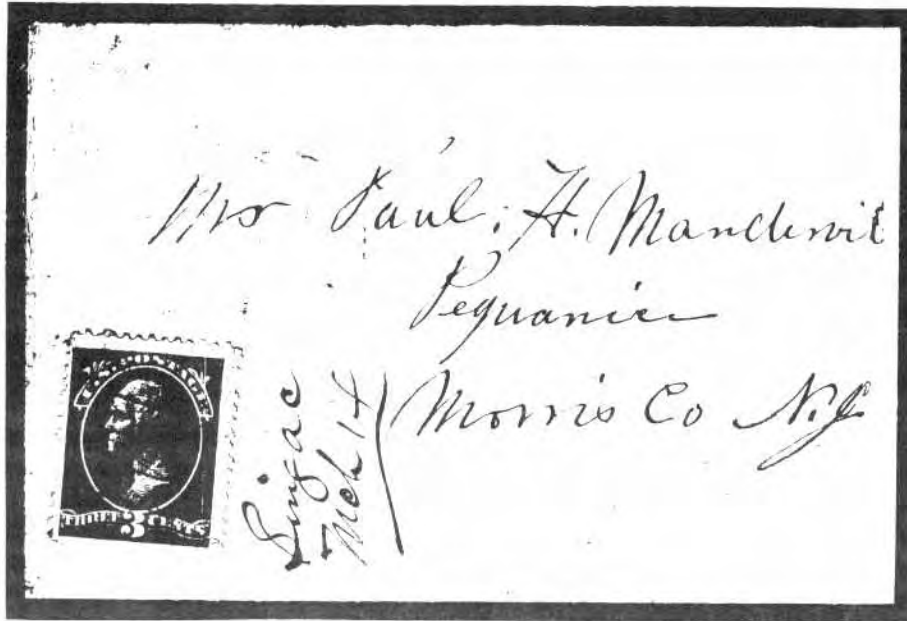 Mrs Paul. H. Mandevil
Pequanic
Morris Co N.J.
Singac
Mch 14
U.S. POSTAGE
THREE 3 CENTS